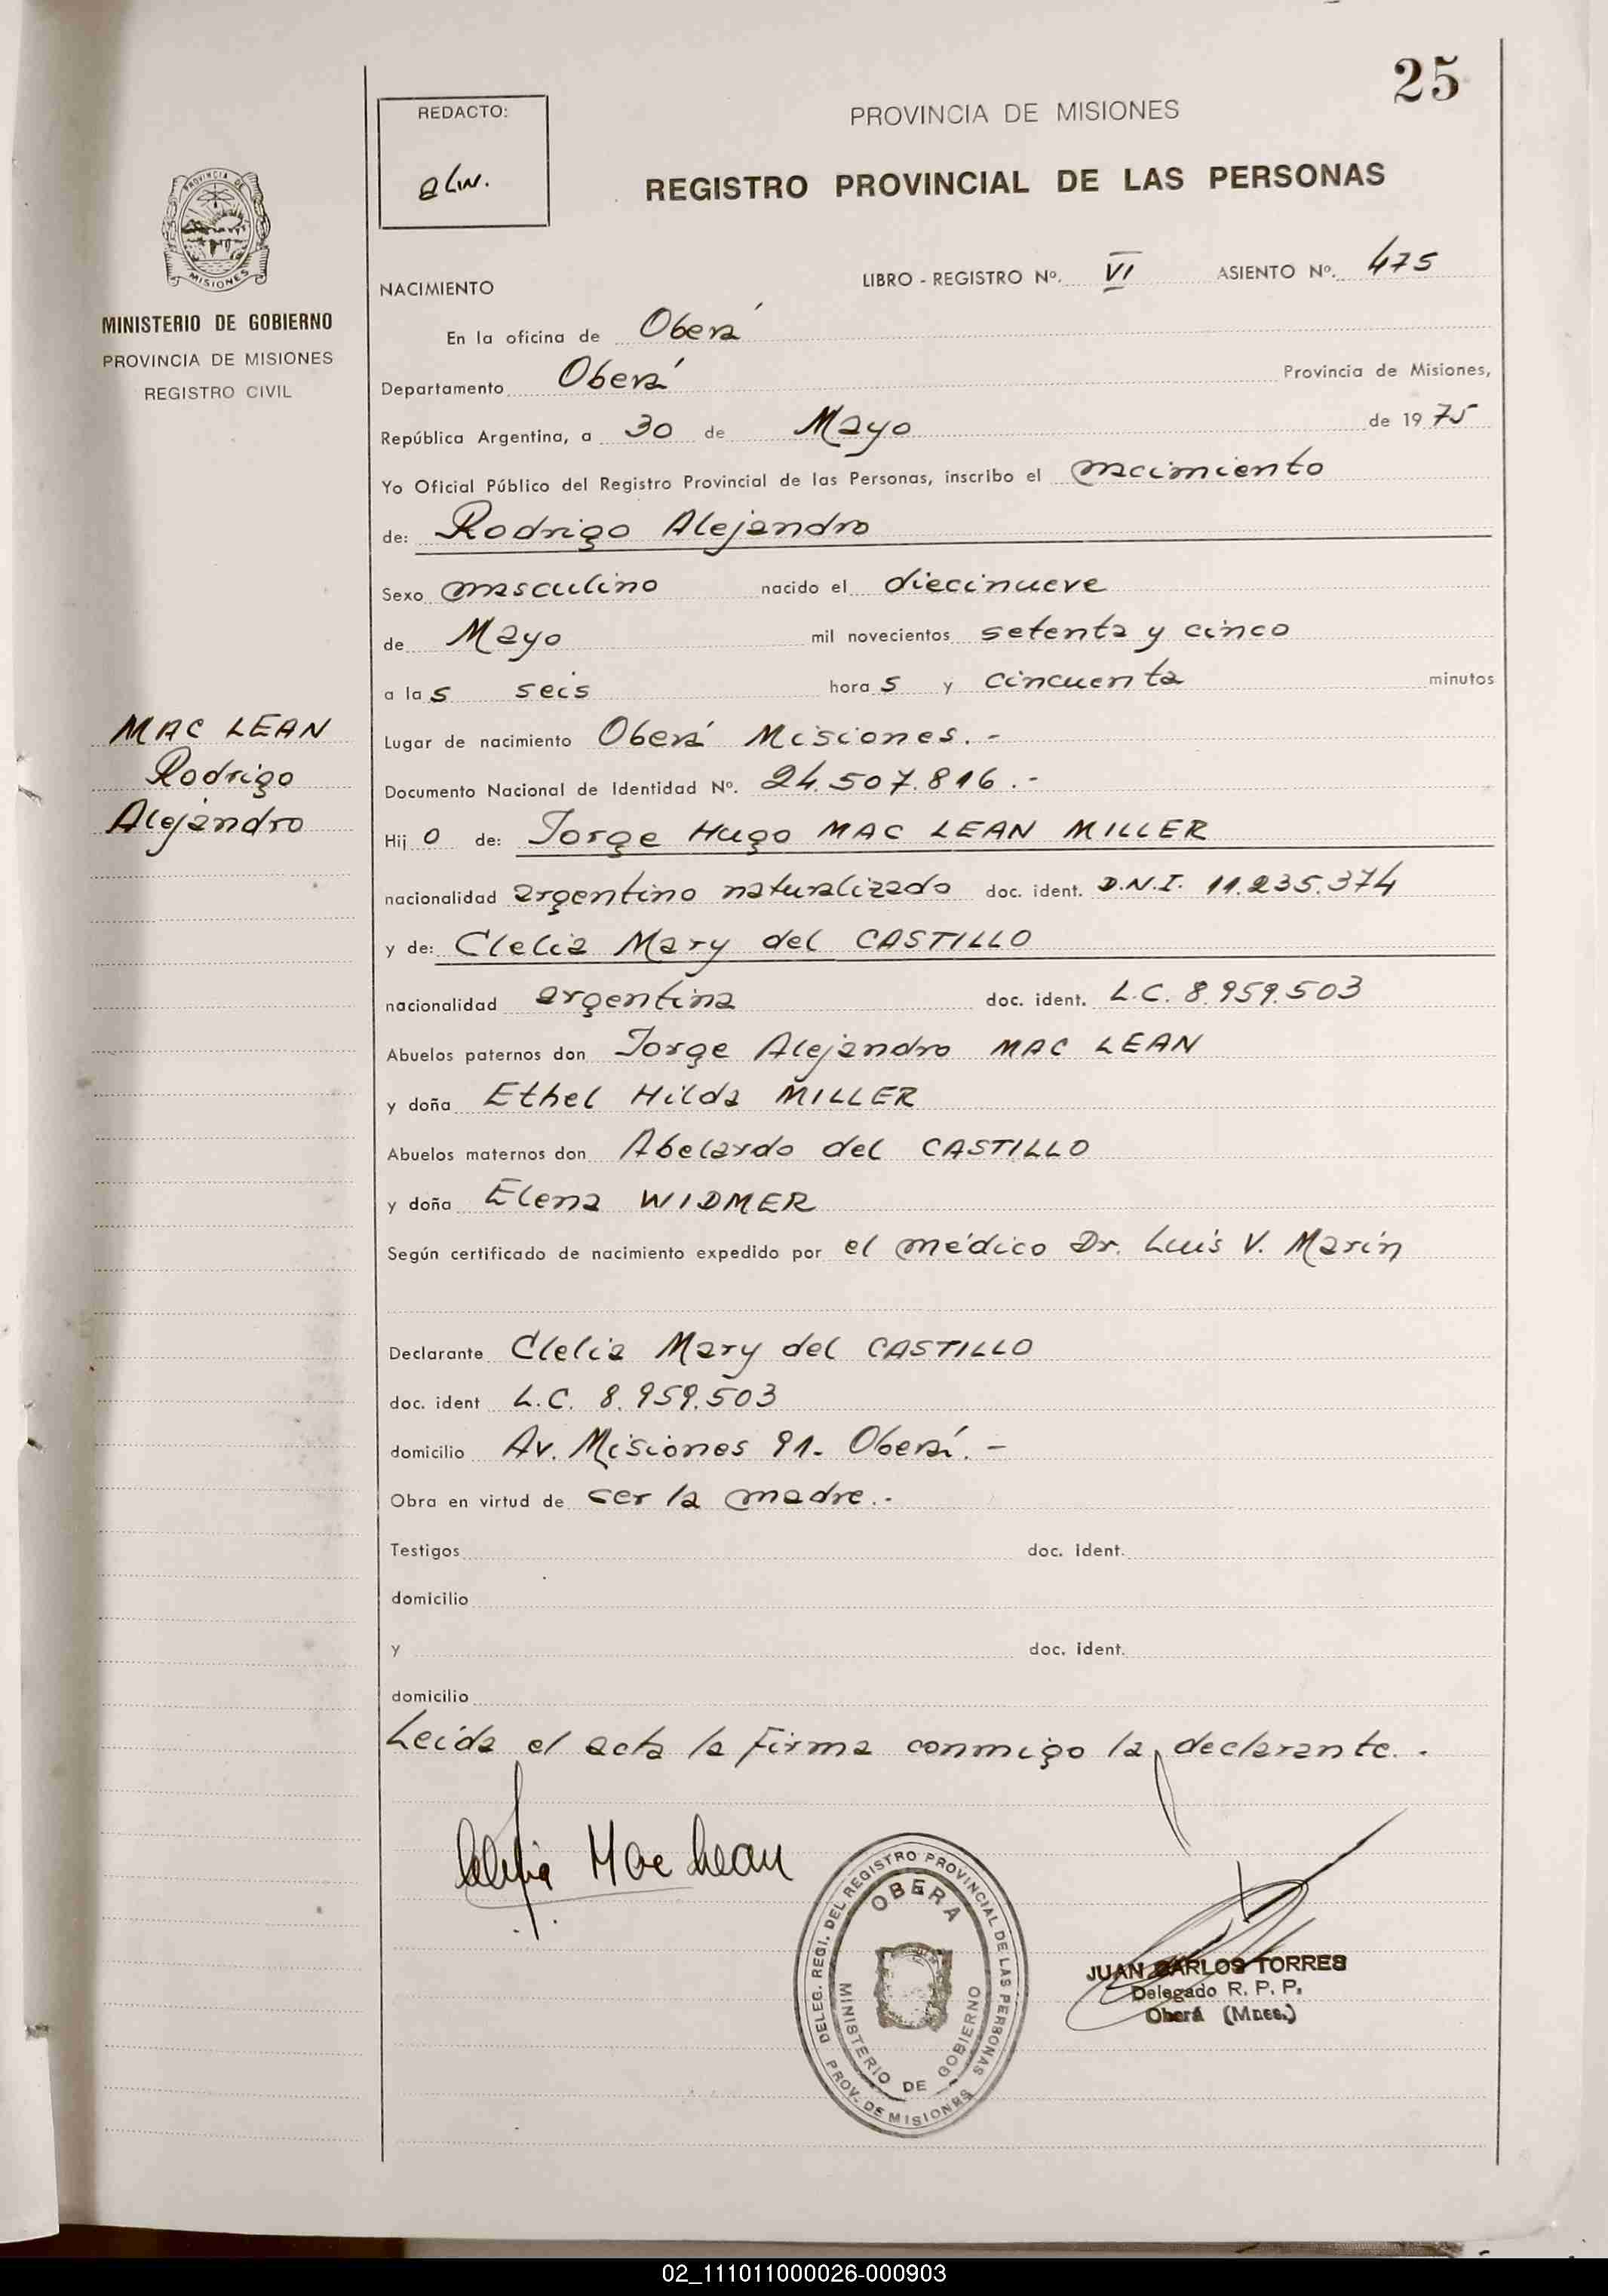 25
REDACTO:
PROVINCIA DE MISIONES
REGISTRO PROVINCIAL DE LAS PERSONAS
PROVINCIA DE
MISIONES
MINISTERIO DE GOBIERNO
PROVINCIA DE MISIONES
REGISTRO CIVIL
NACIMIENTO LIBRO - REGISTRO Nº. VI ASIENTO Nº. 475
En la oficina de Oberá
Departamento Oberá Provincia de Misiones,
República Argentina, a 30 de Mayo de 1975
Yo Oficial Público del Registro Provincial de las Personas, inscribo el nacimiento
de: Rodrigo Alejandro
Sexo masculino nacido el diecinueve
de Mayo mil novecientos setenta y cinco
a las seis horas y cincuenta minutos
MAC LEAN
Rodrigo
Alejandro
Lugar de nacimiento Oberá Misiones.-
Documento Nacional de Identidad Nº. 24.507.816.-
Hijo de: Jorge Hugo MAC LEAN MILLER
nacionalidad argentino naturalizado doc. ident. D.N.I. 11.235.374
y de: Clelia Mary del CASTILLO
nacionalidad argentina doc. ident. L.C. 8.959.503
Abuelos paternos don Jorge Alejandro MAC LEAN
y doña Ethel Hilda MILLER
Abuelos maternos don Abelardo del CASTILLO
y doña Elena WIDMER
Según certificado de nacimiento expedido por el médico Dr. Luis V. Marín
Declarante Clelia Mary del CASTILLO
doc. ident L.C. 8.959.503
domicilio Av. Misiones 91- Oberá.-
Obra en virtud de ser la madre.-
Testigos doc. ident.
domicilio
y doc. ident.
domicilio
Leída el acta la firma conmigo la declarante.-
Clelia Mac Lean
DELEG. REGI. DEL REGISTRO PROVINCIAL DE LAS PERSONAS
OBERA
MINISTERIO DE GOBIERNO
PROV. DE MISIONES
JUAN CARLOS TORRES
Delegado R. P. P.
Oberá (Mnes.)
02_111011000026-000903